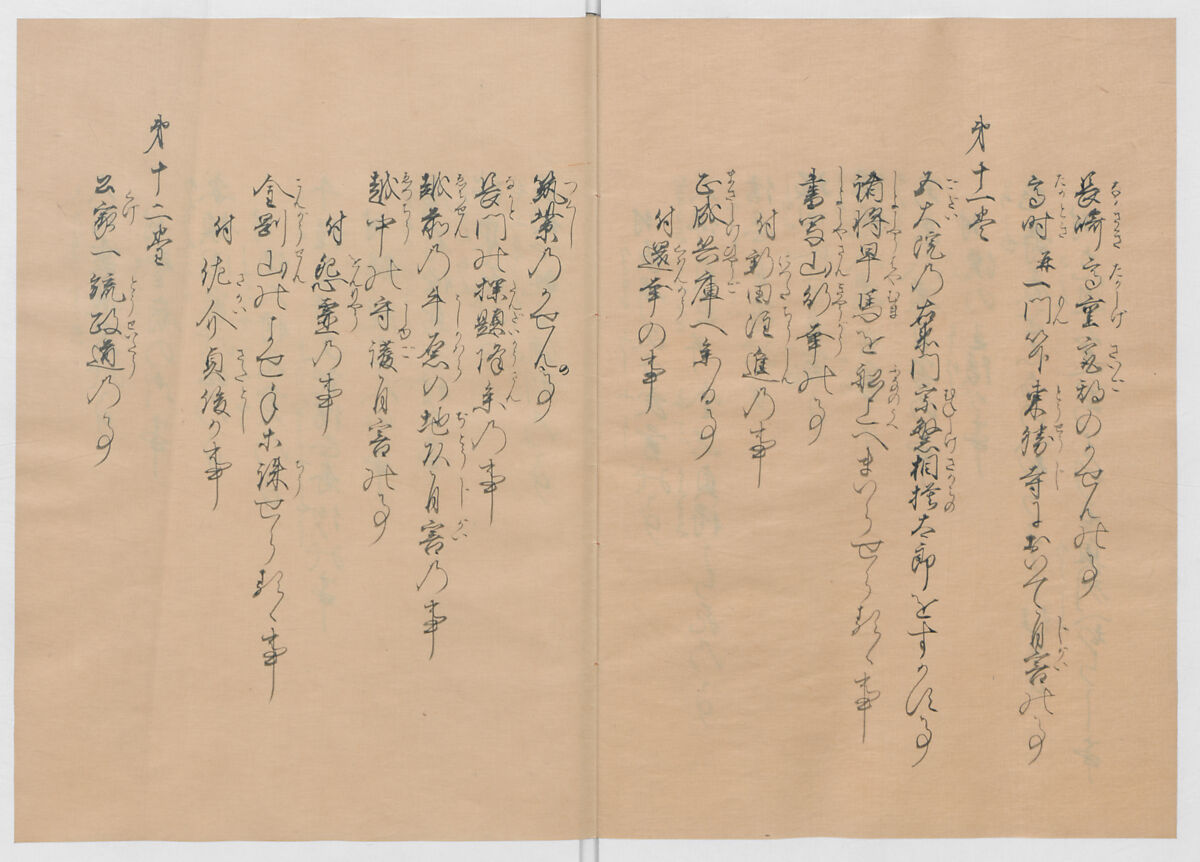 長崎高重最期のかせんの事
高時并一門等東勝寺において自害の事
第十一巻
五大院の右衛門宗繁相模太郎をすかす事
諸将早馬を船上へまいらせらるゝ事
書写山行幸の事
付新田注進の事
正成兵庫へ参る事
付還幸の事
筑紫のかせんの事
長門の探題降参の事
越前の牛原の地頭自害の事
越中の守護自害の事
付怨霊の事
金剛山のよせ手=誅せらるゝ事
付佐介貞俊か事
第十二巻
公家一統政道の事